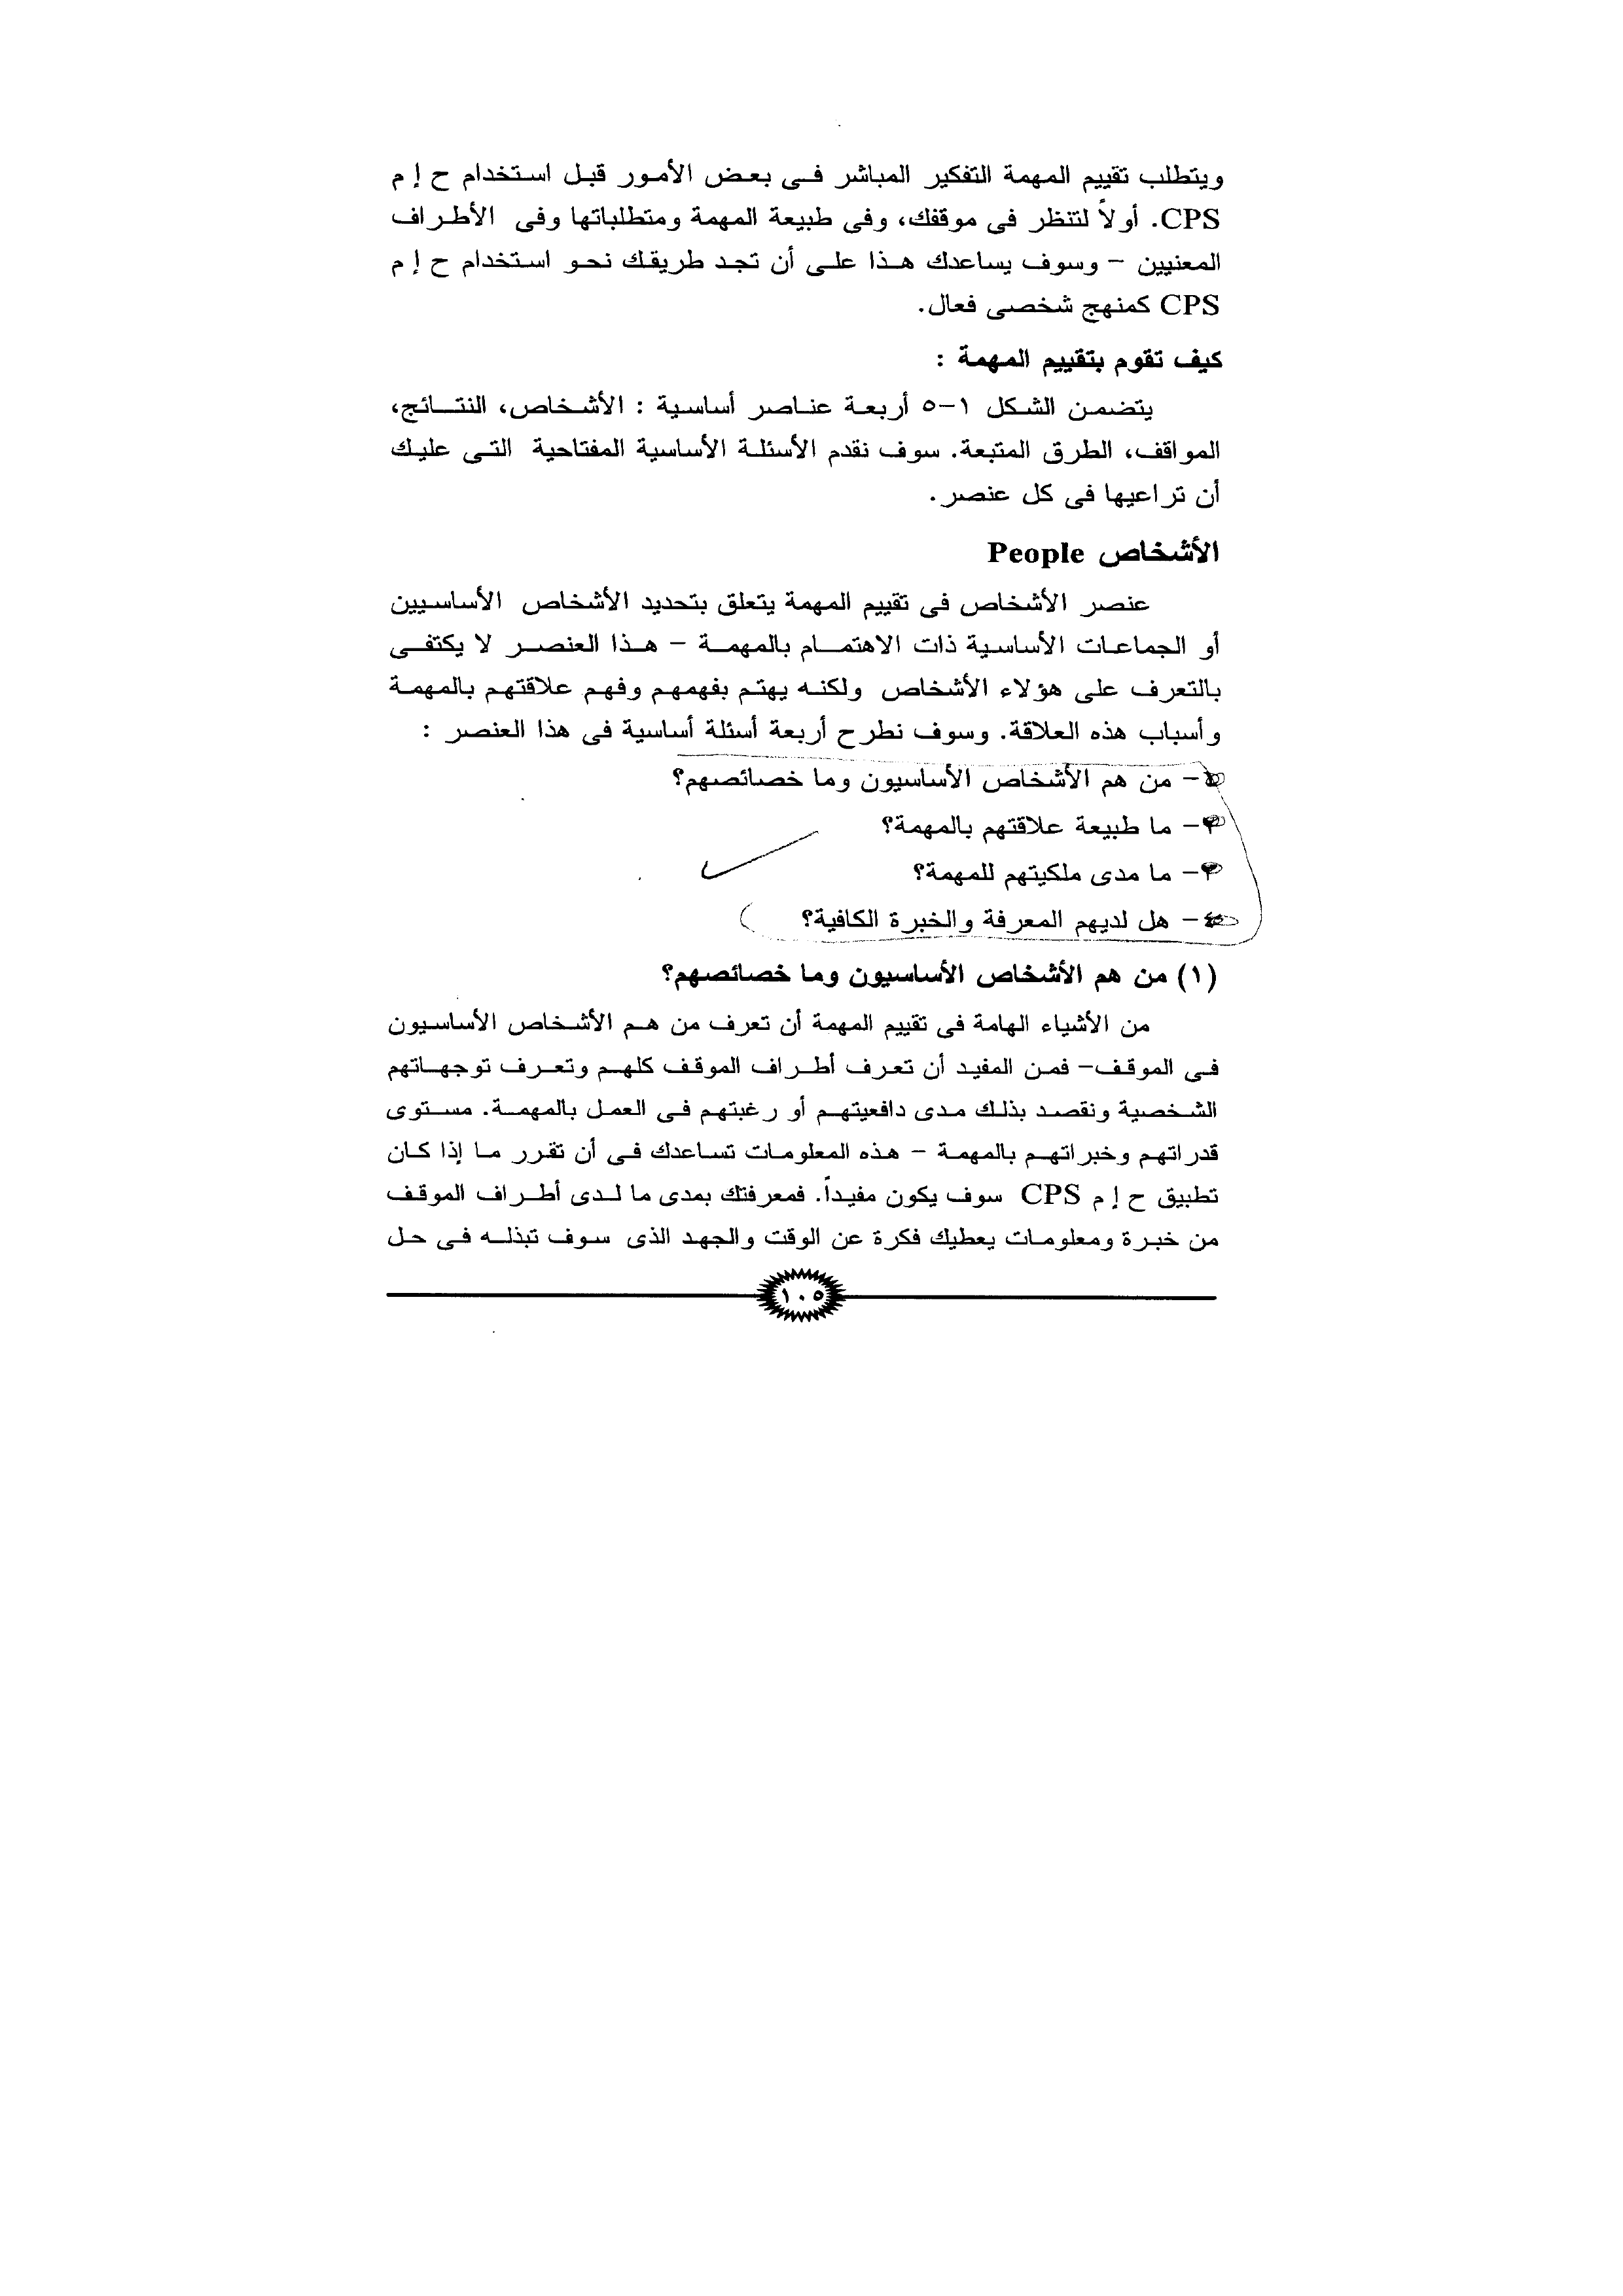 ويتطلب تقييم المهمة التفكير المباشر فى بعض الأمور قبل استخدام ح إ م
CPS. أولاً لتنظر فى موقفك، وفى طبيعة المهمة ومتطلباتها وفى الأطراف
المعنيين - وسوف يساعدك هذا على أن تجد طريقك نحو استخدام ح إ م
CPS كمنهج شخصى فعال.
كيف تقوم بتقييم المهمة :
يتضمن الشكل ١-٥ أربعة عناصر أساسية : الأشخاص، النتائج،
المواقف، الطرق المتبعة. سوف نقدم الأسئلة الأساسية المفتاحية التى عليك
أن تراعيها فى كل عنصر.
الأشخاص People
عنصر الأشخاص فى تقييم المهمة يتعلق بتحديد الأشخاص الأساسيين
أو الجماعات الأساسية ذات الاهتمام بالمهمة - هذا العنصر لا يكتفى
بالتعرف على هؤلاء الأشخاص ولكنه يهتم بفهمهم وفهم علاقتهم بالمهمة
وأسباب هذه العلاقة. وسوف نطرح أربعة أسئلة أساسية فى هذا العنصر :
١- من هم الأشخاص الأساسيون وما خصائصهم؟
٢- ما طبيعة علاقتهم بالمهمة؟
٣- ما مدى ملكيتهم للمهمة؟
٤- هل لديهم المعرفة والخبرة الكافية؟
(١) من هم الأشخاص الأساسيون وما خصائصهم؟
من الأشياء الهامة فى تقييم المهمة أن تعرف من هم الأشخاص الأساسيون
فى الموقف- فمن المفيد أن تعرف أطراف الموقف كلهم وتعرف توجهاتهم
الشخصية ونقصد بذلك مدى دافعيتهم أو رغبتهم فى العمل بالمهمة. مستوى
قدراتهم وخبراتهم بالمهمة - هذه المعلومات تساعدك فى أن تقرر ما إذا كان
تطبيق ح إ م CPS سوف يكون مفيداً. فمعرفتك بمدى ما لدى أطراف الموقف
من خبرة ومعلومات يعطيك فكرة عن الوقت والجهد الذى سوف تبذله فى حل
١٠٥